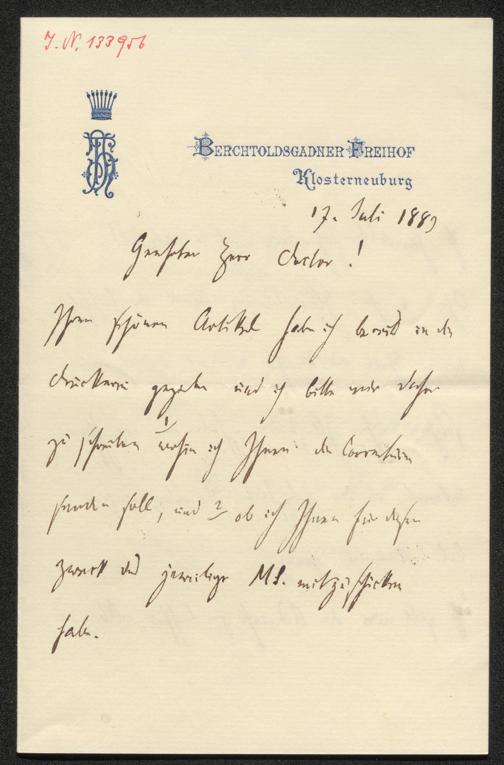 J. N. 133956
BERCHTOLDSGADNER FREIHOF
Klosterneuburg
17. Juli 1889
Geehrter Herr Doctor!
Ihren schönen Artikel habe ich bereits in die
Druckerei gegeben und ich bitte mir daher
zu schreiben 1 wohin ich Ihnen die Correctur
senden soll, und 2 ob ich Ihnen für diesen
Zweck das jeweilige MS. mitzuschicken
habe.